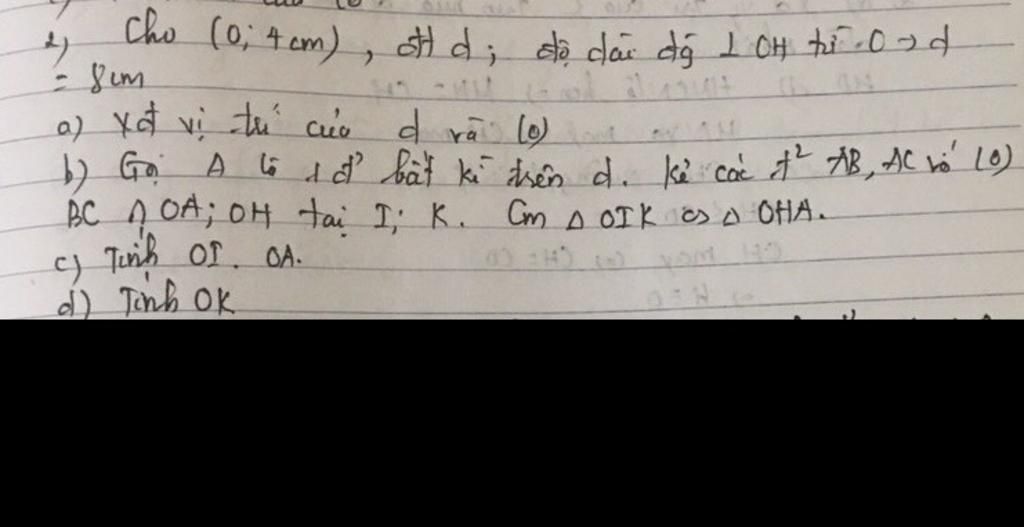 2) Cho (O; 4cm), đt d; độ dài đg ⊥ OH từ O → d
= 8cm
a) Xđ vị trí của d và (O)
b) Gọi A là 1 đ' bất kì trên d. Kẻ các t² AB, AC vớ (O)
BC ∩ OA; OH tại I; K. Cm Δ OIK ∽ Δ OHA.
c) Tính OI. OA.
d) Tính OK